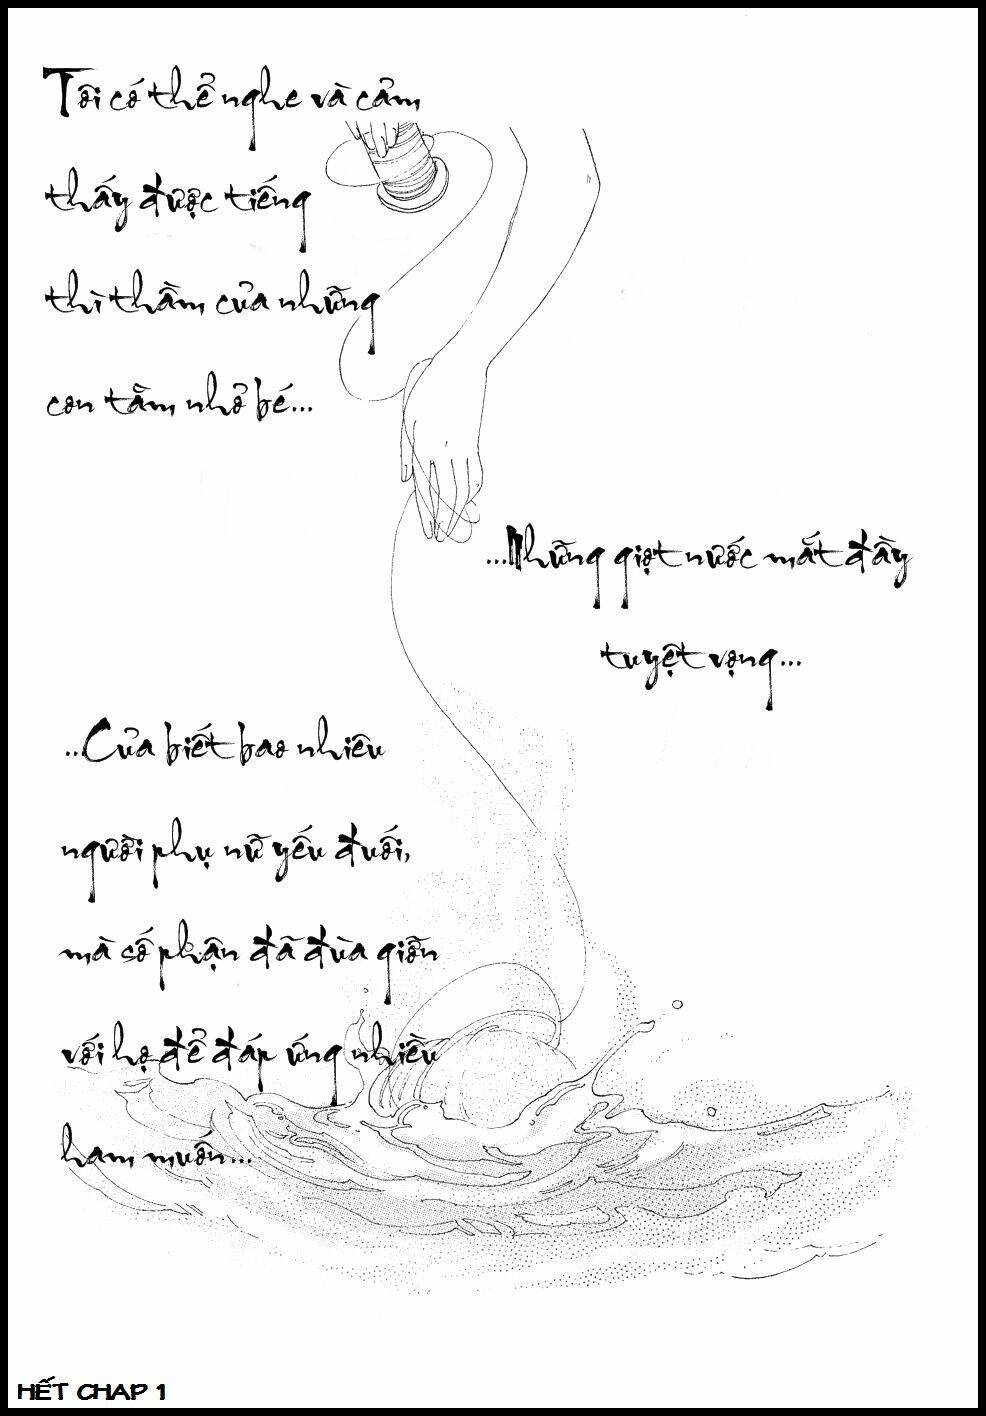 Tôi có thể nghe và cảm
thấy được tiếng
thì thầm của những
con tằm nhỏ bé...
...Những giọt nước mắt đầy
tuyệt vọng...
...Của biết bao nhiêu
người phụ nữ yếu đuối,
mà số phận đã đùa giỡn
với họ để đáp ứng nhiều
ham muốn...
HẾT CHAP 1